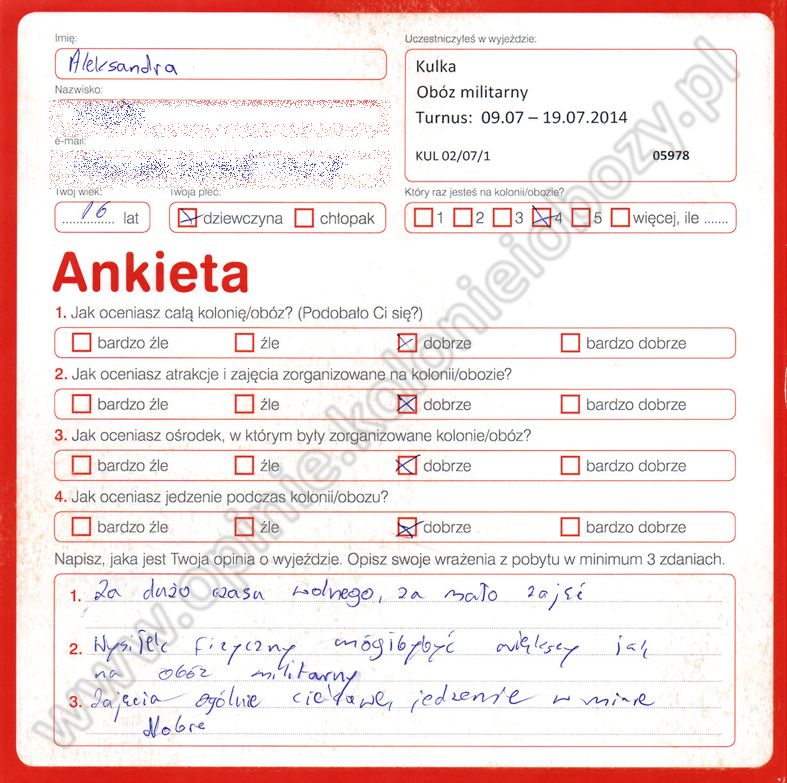 Imię:
Aleksandra
Uczestniczyłeś w wyjeździe:
Kulka
Obóz militarny
Turnus: 09.07 – 19.07.2014
KUL 02/07/1 05978
Nazwisko:
e-mail:
Twój wiek:
16 lat
Twoja płeć:
dziewczyna chłopak
Który raz jesteś na kolonii/obozie?
1 2 3 4 5 więcej, ile .......
Ankieta
1. Jak oceniasz całą kolonię/obóz? (Podobało Ci się?)
bardzo źle źle dobrze bardzo dobrze
2. Jak oceniasz atrakcje i zajęcia zorganizowane na kolonii/obozie?
bardzo źle źle dobrze bardzo dobrze
3. Jak oceniasz ośrodek, w którym były zorganizowane kolonie/obóz?
bardzo źle źle dobrze bardzo dobrze
4. Jak oceniasz jedzenie podczas kolonii/obozu?
bardzo źle źle dobrze bardzo dobrze
Napisz, jaka jest Twoja opinia o wyjeździe. Opisz swoje wrażenia z pobytu w minimum 3 zdaniach.
1. Za dużo czasu wolnego, za mało zajęć
2. Wysiłek fizyczny mógłbybyć większy jak
na obóz militarny
3. Zajęcia ogólnie ciekawe, jedzenie w miare
dobre
www.opinie.kolonieiobozy.pl